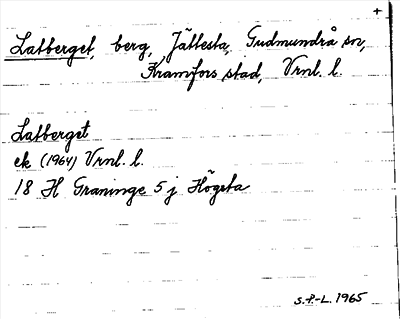 +
Latberget, berg, Jättesta, Gudmundrå sn,
Kramfors stad, Vrnl. l.
Latberget
ek (1964) Vrnl. l.
18 H Graninge 5 j Högsta
S.P-L. 1965